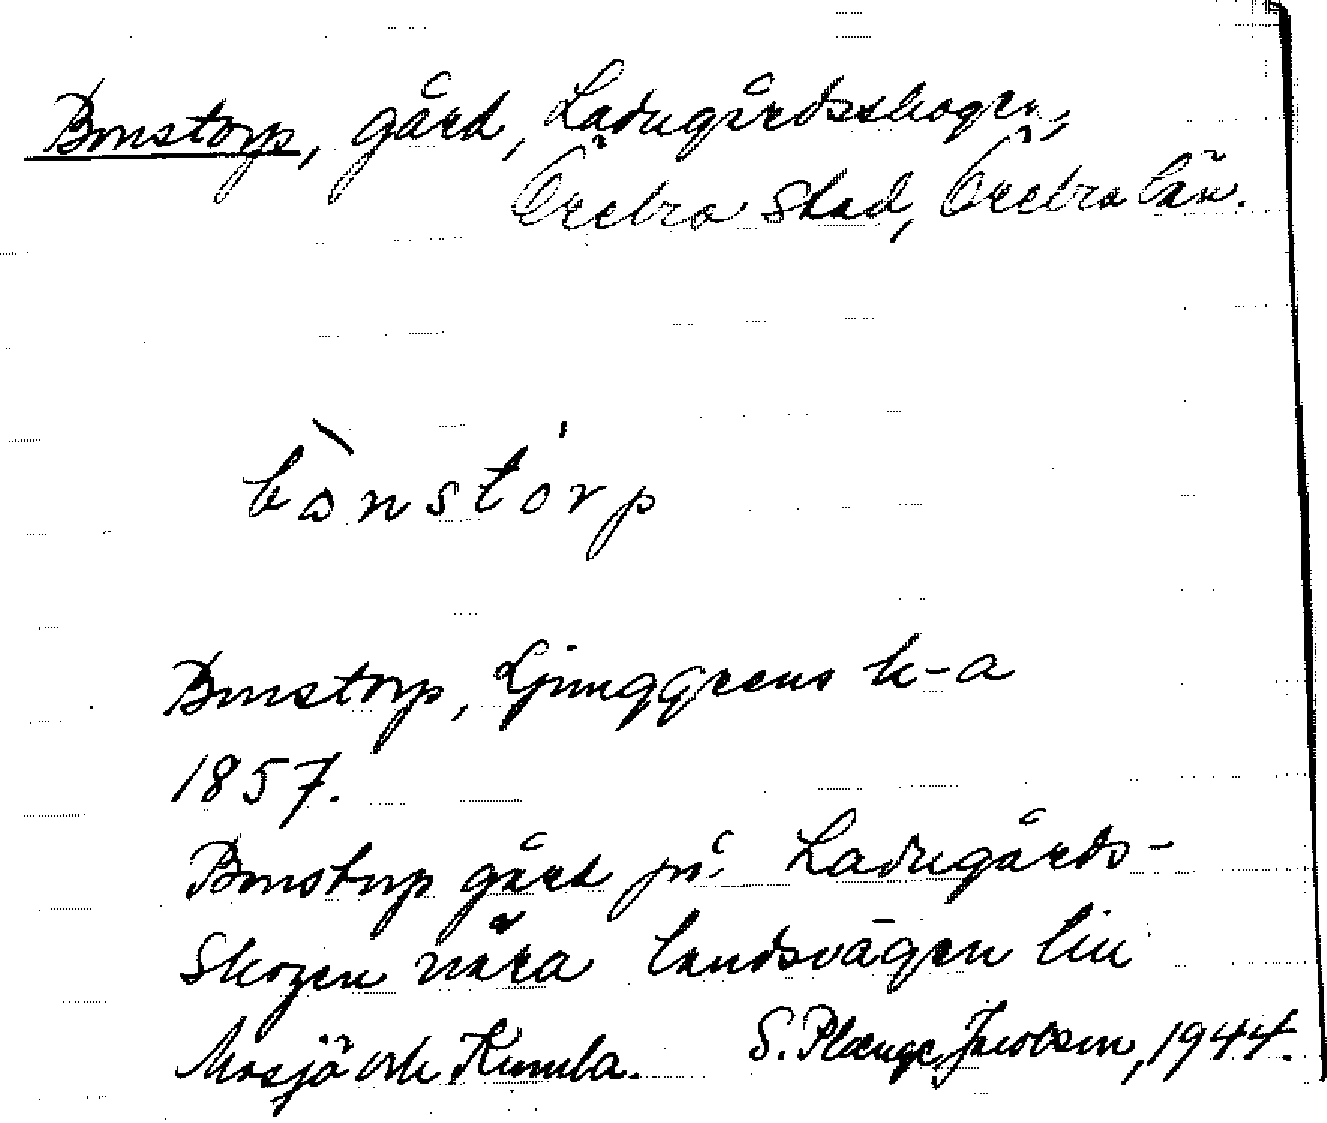 Bonstorp, gård, Ladugårdsskogen,
Örebro stad, Örebro län.
bònstórp
Bonstorp, Ljunggrens k-a
1857.
Bonstorp gård på Ladugårds-
skogen nära landsvägen till
Mosjö och Kumla. S. Plænge Jacobson, 1944.